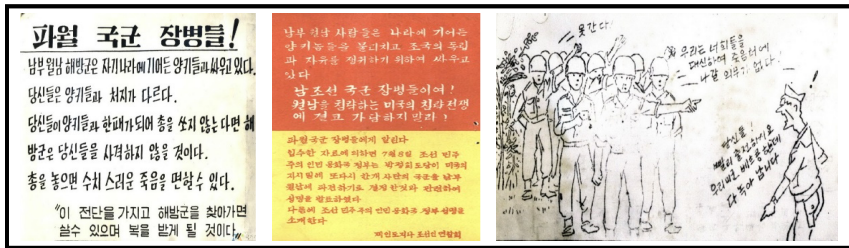 파월 국군 장병들!
남부 월남 해방군은 자기나라에 기어든 양키들과 싸우고 있다.
당신들은 양키들과 처지가 다르다.
당신들이 양키들과 한패가 되어 총을 쏘지 않는다면 해
방군은 당신들을 사격하지 않을 것이다.
총을 놓으면 수치스러운 죽음을 면할 수 있다.
"이 전단을 가지고 해방군을 찾아가면
살수 있으며 복을 받게 될 것이다."
남부 월남 사람들은 나라에 기어든
양키놈들을 물리치고 조국의 독립
과 자유를 쟁취하기 위하여 싸우고
있다
남조선 국군 장병들이여!
월남을 침략하는 미국의 침략전쟁
에 결코 가담하지말라!
파월국군 장병들에게 알린다
입수한 자료에 의하면 7월8일 조선 민주
주의 인민 공화국 정부는 박정희도당이 미국의
지시밑에 또다시 한개 사단의 국군을 남부
월남에 파견하기로 결정한것과 관련하여
성명을 발표하였다
다음에 조선 민주주의 인민 공화국 정부 성명을
소개한다
못간다!
우리는 너희들을
대신하여 죽음터에
나갈 의무가 없다!
당신들!
빨리 출진하시오
다 놓아 납니다